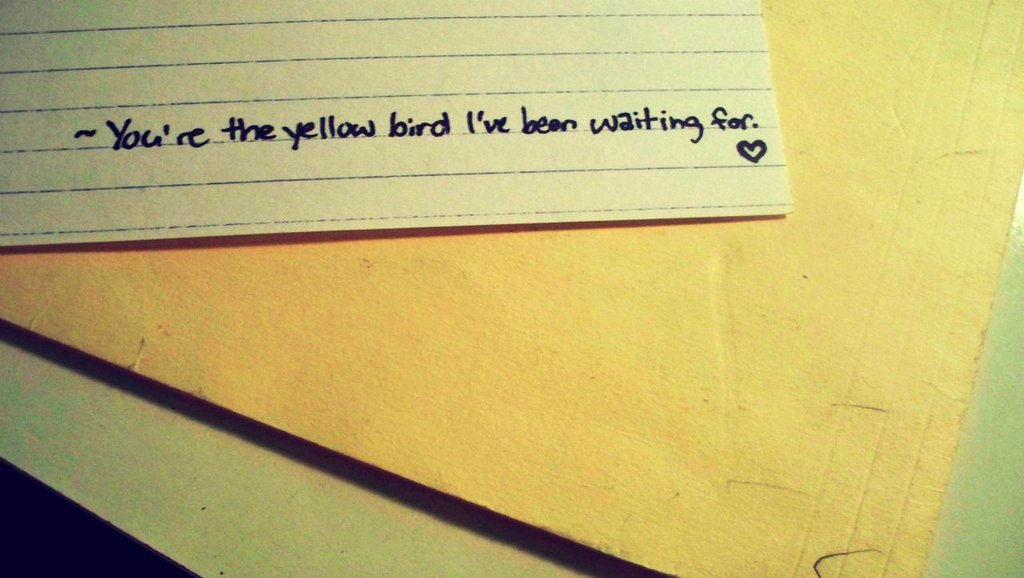 ~ You're the yellow bird I've been waiting for.
♡